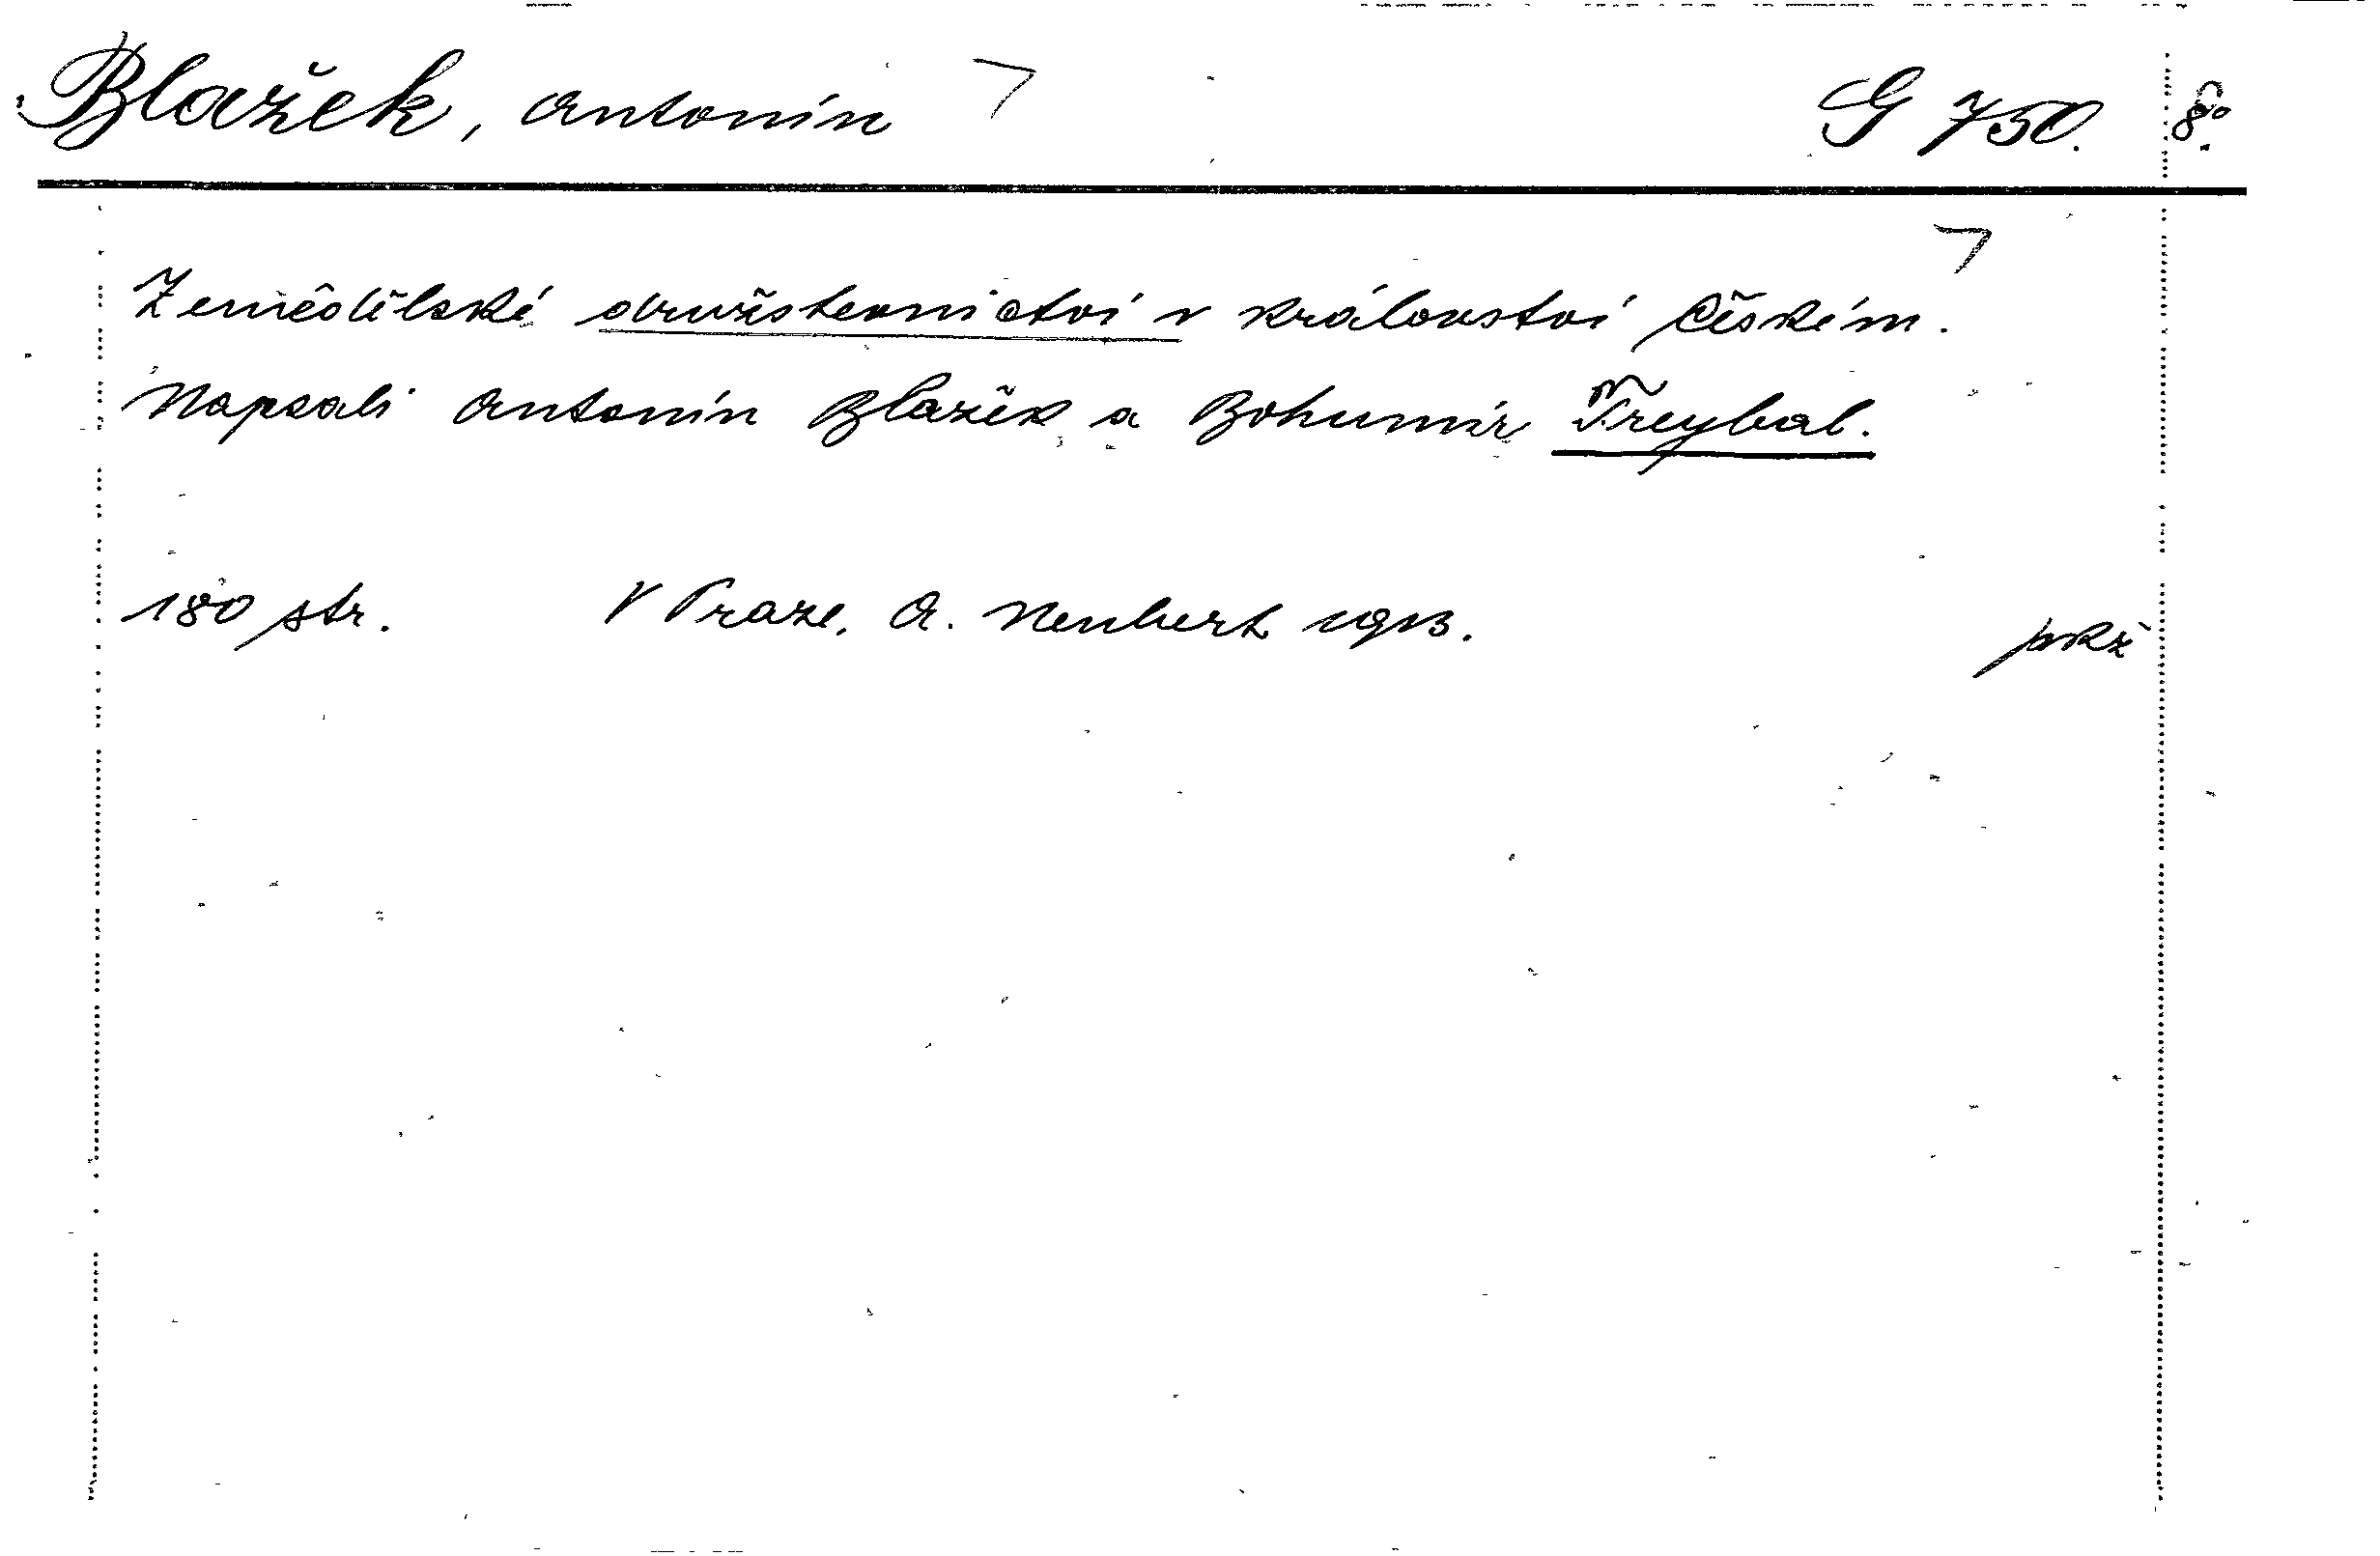 Blažek, Antonín G 750. 8º.
Zemědělské družstevnictví v království Českém.
Napsali Antonín Blažek a Bohumír Treybal.
180 str. V Praze, A. Neubert 1913.